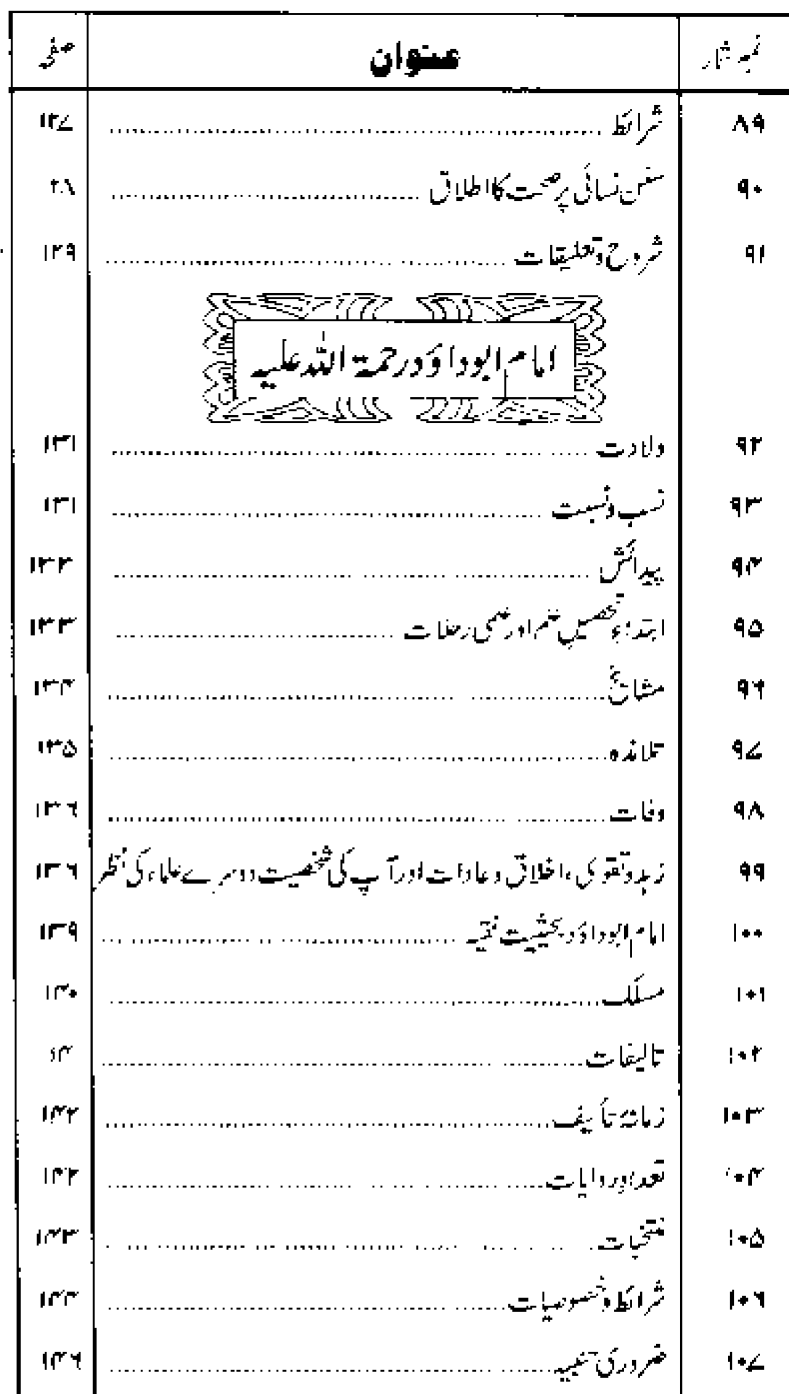 نمبر شمار عنوان صفحہ
۸۹ شرائط ۱۲۷
۹۰ سنن نسائی پر صحت کا اطلاق ۲۸
۹۱ شروح وتعلیقات ۱۲۹
امام ابوداؤد رحمۃ اللہ علیہ
۹۲ ولادت ۱۳۱
۹۳ نسب ونسبت ۱۳۱
۹۴ پیدائش ۱۳۳
۹۵ ابتداءِ تحصیلِ علم اور علمی رحلات ۱۳۳
۹۶ مشائخ ۱۳۴
۹۷ تلامذہ ۱۳۵
۹۸ وفات ۱۳۶
۹۹ زہد وتقویٰ، اخلاق وعادات اور آپ کی شخصیت دوسرے علماء کی نظر ۱۳۶
۱۰۰ امام ابوداؤد بحیثیت فقیہ ۱۳۹
۱۰۱ مسلک ۱۴۰
۱۰۲ تالیفات ۱۴
۱۰۳ زمانۂ تألیف ۱۴۲
۱۰۴ تعداد روایات ۱۴۲
۱۰۵ منتخبات ۱۴۳
۱۰۶ شرائط وخصوصیات ۱۴۴
۱۰۷ ضروری تنبیہ ۱۴۶